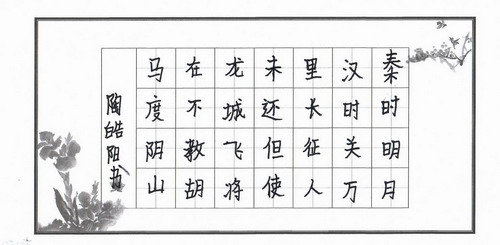 秦时明月
汉时关万
里长征人
未还但使
龙城飞将
在不教胡
马度阴山
陶皓阳书